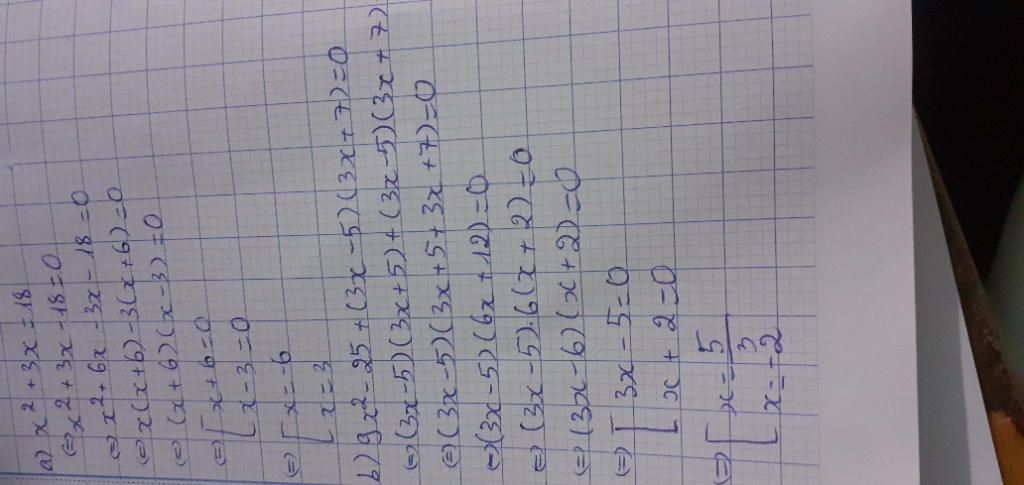 a) x² + 3x = 18
⇔ x² + 3x - 18 = 0
⇔ x² + 6x - 3x - 18 = 0
⇔ x(x+6) - 3(x+6) = 0
⇔ (x+6)(x-3) = 0
⇔ [ x + 6 = 0
x - 3 = 0
⇔ [ x = -6
x = 3
b) 9x² - 25 + (3x - 5)(3x + 7) = 0
⇔ (3x - 5)(3x + 5) + (3x - 5)(3x + 7)
⇔ (3x - 5)(3x + 5 + 3x + 7) = 0
⇔ (3x - 5)(6x + 12) = 0
⇔ (3x - 5).6(x + 2) = 0
⇔ (3x - 6)(x + 2) = 0
⇔ [ 3x - 5 = 0
x + 2 = 0
⇔ [ x = 5/3
x = -2